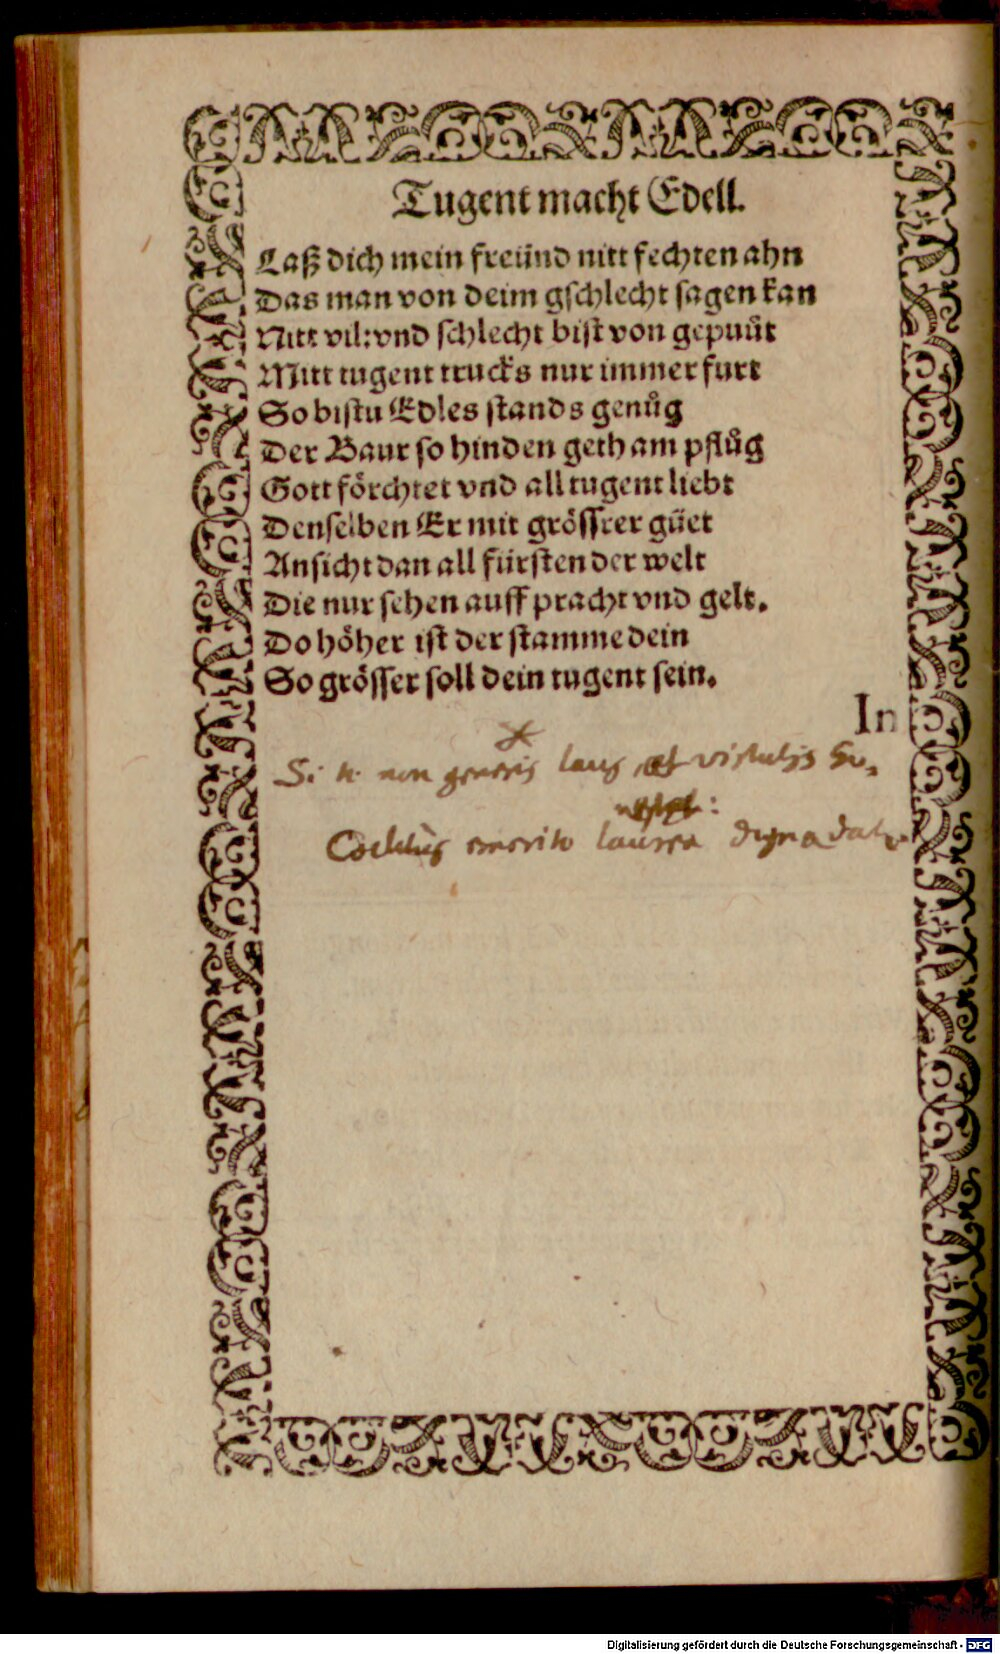 Tugent macht Edell.
Laß dich mein freünd nitt fechten ahn
Das man von deim gschlecht sagen kan
Nitt vil: vnd schlecht bist von gepuůt
Mitt tugent trucks nur immer furt
So bistu Edles stands genůg
Der Baur so hinden geth am pflůg
Gott förchtet vnd all tugent liebt
Denselben Er mit grösster güet
Ansicht dan all fürsten der welt
Die nur sehen auff pracht vnd gelt.
Do höher ist der stamme dein
So grösser soll dein tugent sein.
In
Si n. non generis laus, virtutis
Coelitus merito laurea digna datur
Digitalisierung gefördert durch die Deutsche Forschungsgemeinschaft - DFG